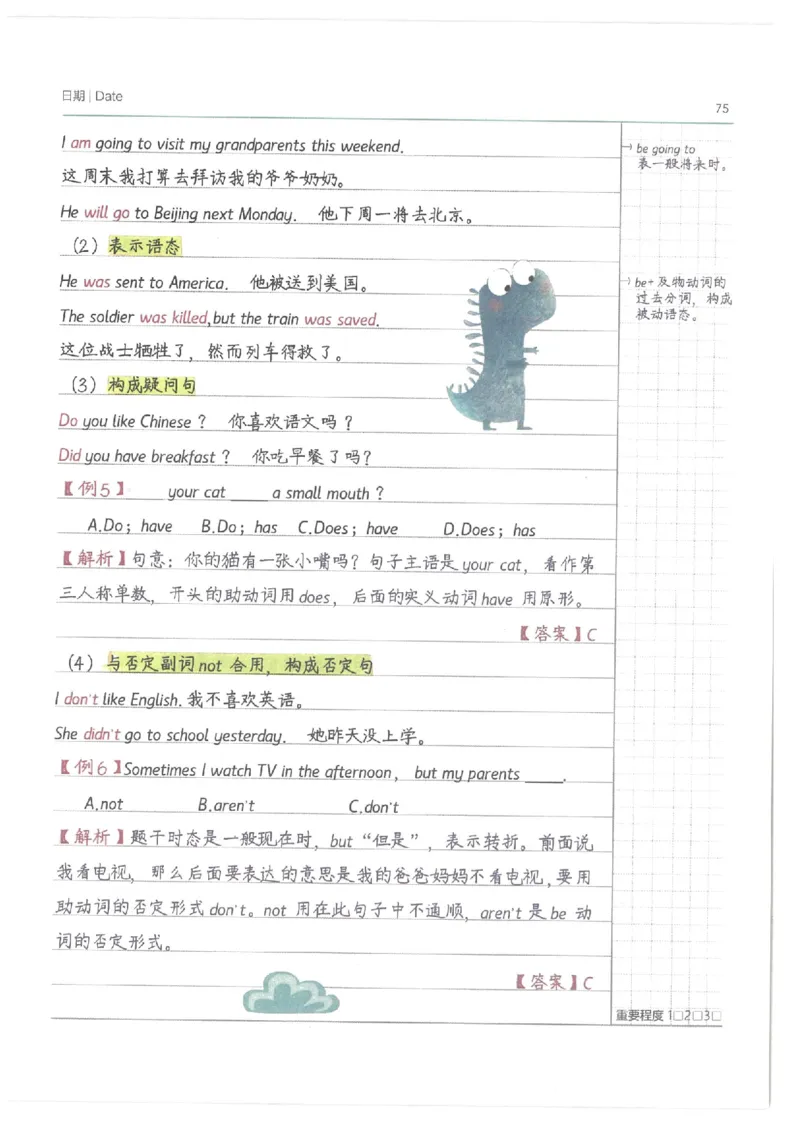 日期 | Date
75
I am going to visit my grandparents this weekend.
→ be going to
表一般将来时。
这周末我打算去拜访我的爷爷奶奶。
He will go to Beijing next Monday. 他下周一将去北京。
（2）表示语态
He was sent to America. 他被送到美国。
→ be+及物动词的
过去分词，构成
被动语态。
The soldier was killed,but the train was saved.
这位战士牺牲了，然而列车得救了。
（3）构成疑问句
Do you like Chinese？ 你喜欢语文吗？
Did you have breakfast？ 你吃早餐了吗？
【例5】 ____ your cat ____ a small mouth？
A.Do；have B.Do；has C.Does；have D.Does；has
【解析】句意：你的猫有一张小嘴吗？句子主语是your cat，看作第
三人称单数，开头的助动词用does，后面的实义动词have 用原形。
【答案】C
（4）与否定副词not 合用，构成否定句
I don't like English. 我不喜欢英语。
She didn't go to school yesterday. 她昨天没上学。
【例6】Sometimes I watch TV in the afternoon，but my parents ____.
A.not B.aren't C.don't
【解析】题干时态是一般现在时，but“但是”，表示转折。前面说
我看电视，那么后面要表达的意思是我的爸爸妈妈不看电视,要用
助动词的否定形式don't。not 用在此句子中不通顺，aren't 是 be 动
词的否定形式。
【答案】C
重要程度 1□2□3□